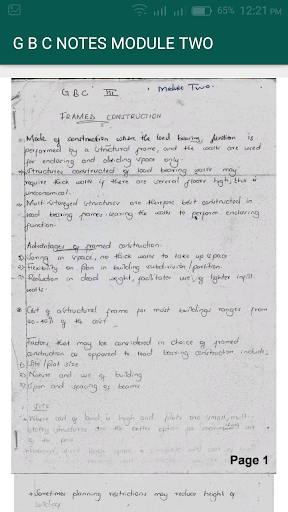 65% 12:21 PM
G B C NOTES MODULE TWO
G B C III Module Two.
FRAMED CONSTRUCTION
Mode of construction where the load bearing function is
performed by a structural frame, and the walls are used
for enclosing and dividing space only.
Structures constructed of load bearing walls may
require thick walls if there are several floors high, this is
uneconomical.
Multi-storeyed structures are therefore best constructed in
load bearing frames leaving the walls to perform enclosing
function.
Advantages of framed construction.
Saving in space, no thick walls to take up space
Flexibility on plan in building subdivision/partition.
Reduction in dead weight, facilitates use of lighter infill
walls.
Cost of a structural frame for most buildings ranges from
of the cost
Factors that may be considered in choice of framed
construction as opposed to load bearing construction include;
Site/plot size
Nature and use of building
Span and spacing of beams
SITE
Where cost of land is high and plots are small, multi
storey structures are the better option for maximum use
of the plot
Page 1
Sometimes planning restrictions may reduce height of
building